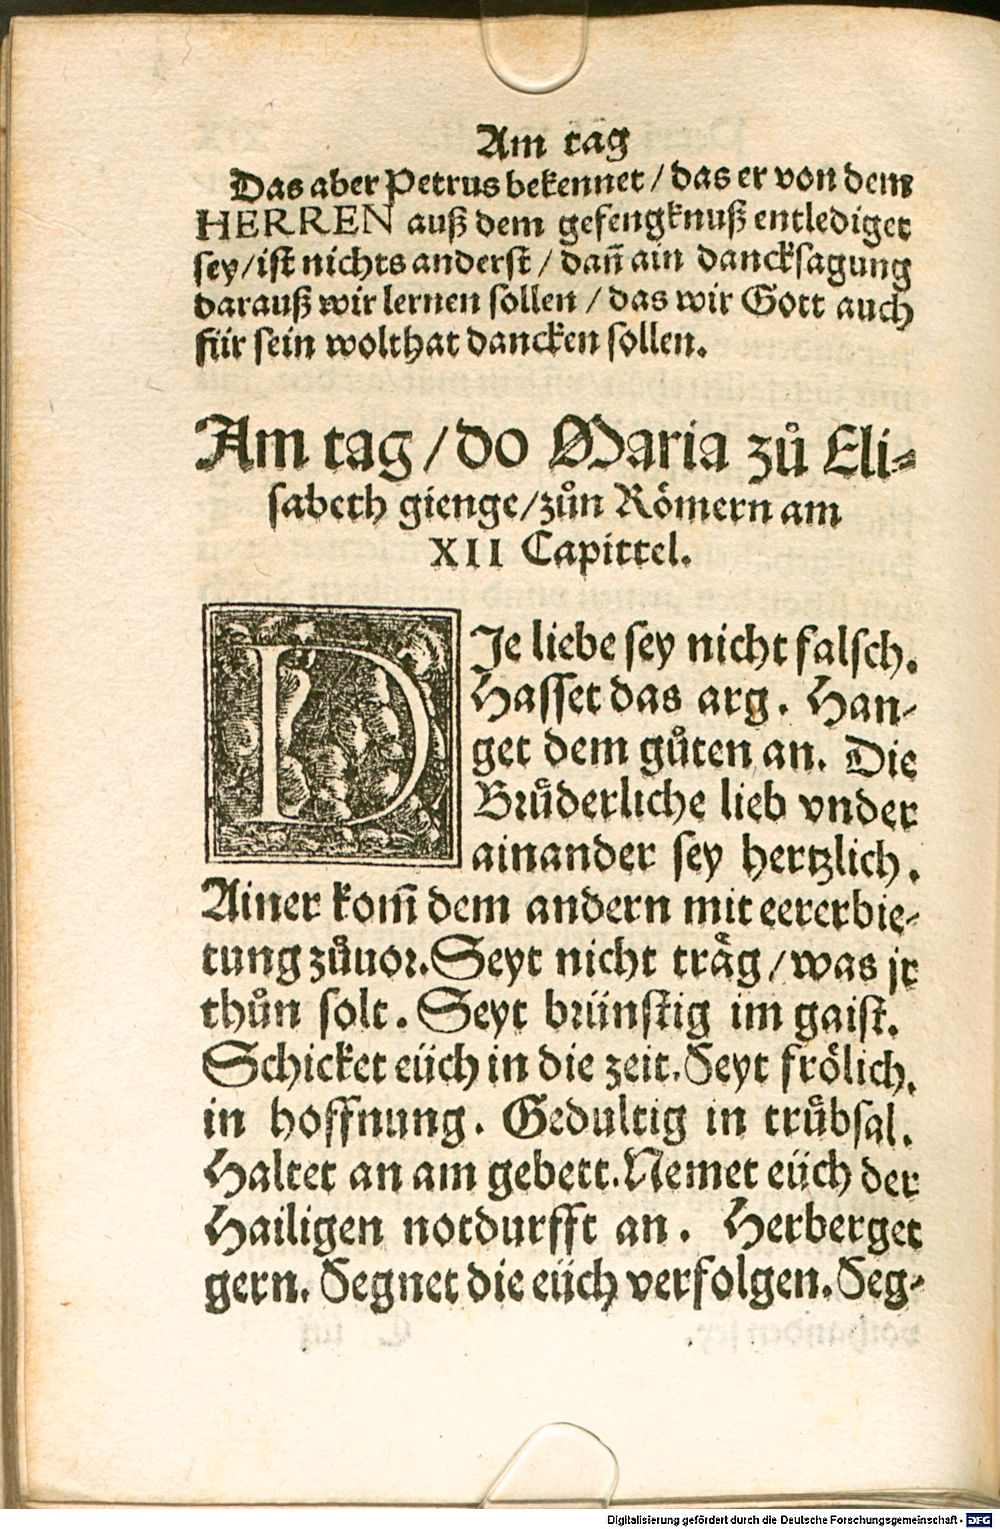 Am tag
Das aber Petrus bekennet / das er von dem
HERREN auß dem gefengknuß entlediget
sey / ist nichts anderst / dañ ain dancksagung
darauß wir lernen sollen / das wir Gott auch
für sein wolthat dancken sollen.
Am tag / do Maria zů Eli-
sabeth gienge / zůn Römern am
XII Capittel.
DIe liebe sey nicht falsch.
Hasset das arg. Han-
get dem gůten an. Die
Bruͤderliche lieb vnder
ainander sey hertzlich.
Ainer kom̃ dem andern mit eererbie-
tung zůuor. Seyt nicht traͤg / was jr
thůn solt. Seyt brünstig im gaist.
Schicket eüch in die zeit. Seyt froͤlich,
in hoffnung. Gedultig in truͤbsal.
Haltet an am gebett. Nemet eüch der
Hailigen notdurfft an. Herberget
gern. Segnet die eüch verfolgen. Seg-
Digitalisierung gefördert durch die Deutsche Forschungsgemeinschaft - DFG